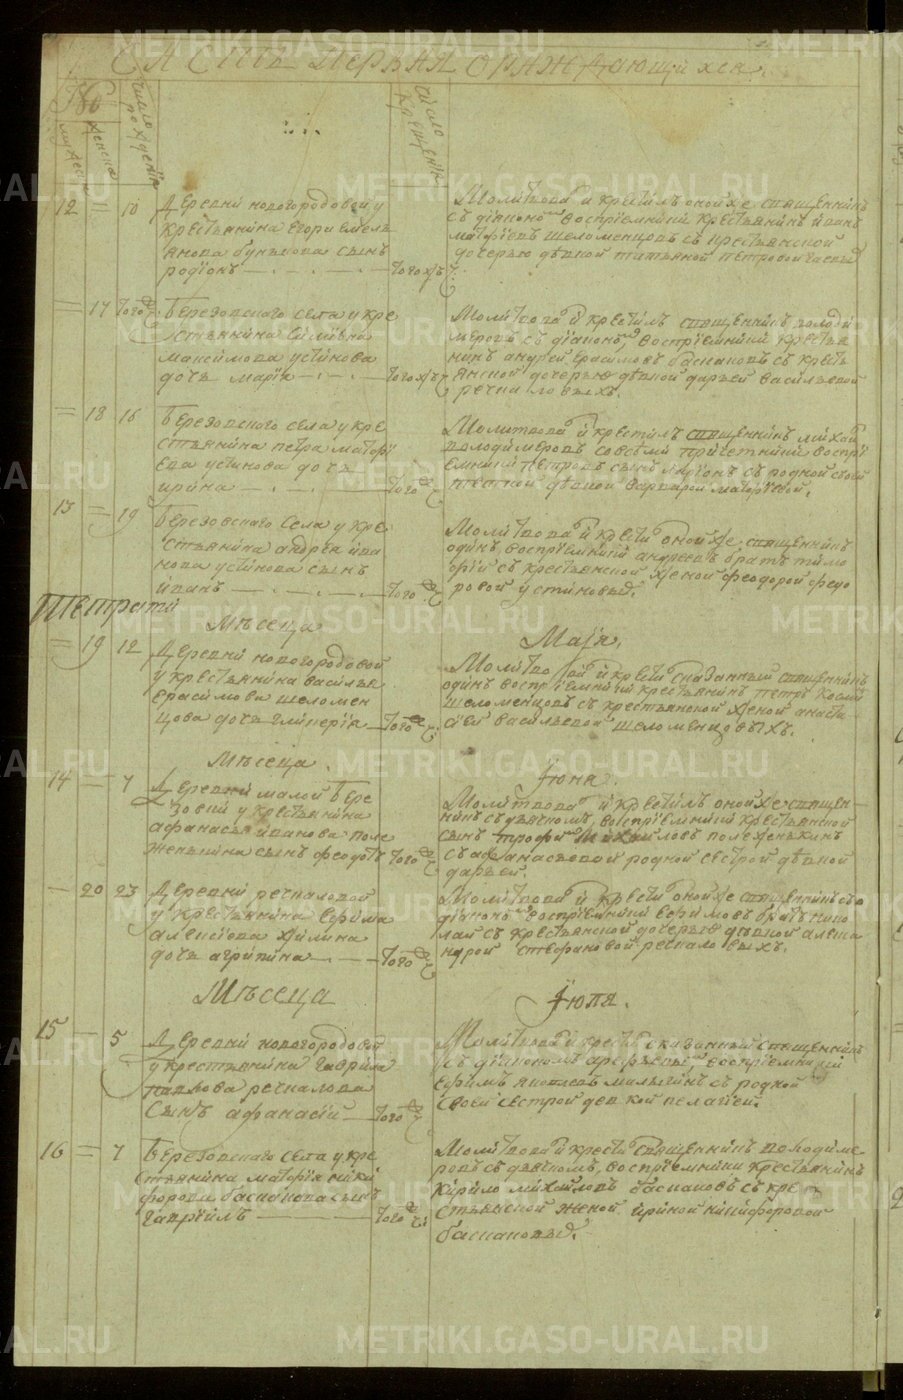 Часть первая о раждающихся.
мужеска
женска
число рождения
число крещения
12 = 10 Деревни новогородовой у
крестьянина Егори Емель
янова бунькова сынъ
родионъ — того жъ
Молитвовалъ и крестилъ оной же священникъ
съ дiакономъ восприемники крестьянинъ иванъ
матфѣевъ шеломенцовъ съ крестьянской
дочерью дѣвкой татьяной петровой
= 17 того Березовского села у кре
стьянина
максимова устинова
дочь марiя — того жъ
Молитвовалъ и крестилъ священникъ володи
меровъ съ дiакономъ, восприемники крестья
нинъ андрей ерасимовъ баснановъ съ кресть
янской дочерью дѣвкой дарьей васильевой
речкаловыхъ.
= 18 16 Березовского села у кре
стьянина петра матфѣ
ева устинова дочь
ирина — того
Молитвовалъ и крестилъ священникъ михаи
володимеровъ со всеми причетники воспрi
емники петровъ сынъ ларiонъ съ родной своей
теткой дѣвкой варварой матфѣевой.
13 = 19 Березовского села у кре
стьянина андрея ива
нова устинова сынъ
иванъ — того
Молитвовалъ и крести оной же священникъ
одинъ восприемники андреевъ братъ тимо
фiй съ крестьянской женой феодорой федо
ровой устиновы.
Тетрати
Мѣсеца Маiя.
= 19 12 Деревни новогородовой
у крестьянина василья
ерасимова шеломен
цова дочь гликерiя — того
Молитвовалъ и крести сказанный священникъ
одинъ восприемники крестьянинъ петръ
шеломенцовъ съ крестьянской женой анаста
сiей васильевой шеломенцовыхъ.
Мѣсеца Iюня.
14 — 7 Деревни малой Бере
зовки у крестьянина
афанасья иванова поле
женькина сынъ феодотъ того
Молитвовалъ и крестилъ оной же священ
никъ съ дьячкомъ, восприемники крестьянской
сынъ трофимъ михайловъ полеженькинъ
съ афанасьевой родной сестрой дѣвкой
дарьей.
— 20 23 Деревни речкаловой
у крестьянина Ефима
алексiева жилина
дочь агрипина — того
Молитвовалъ и крести оной же священникъ со
дiакономъ восприемники ефимовъ братъ нико
лай съ крестьянской дочерью дѣвкой алекса
ндрой стефановой речкаловыхъ.
Мѣсеца Iюля.
15 — 5 Деревни новогородовой
у крестьянина гаврила
павлова речкалова
сынъ афанасiй — того
Молитвовалъ и крести сказанный священникъ
съ дiакономъ арефьевы, восприемники
Ефимъ яковлевъ малыгинъ съ родной
своей сестрой девкой пелагiей.
16 = 7 Березовского села у кре
стьянина матфiя ники
форова баснанова сынъ
гаврiилъ — того
Молитвовалъ и крести священникъ володиме
ровъ съ дьячкомъ, восприемники крестьянинъ
кирило михайловъ баснановъ съ кре
стьянской женой ириной никифоровой
баснановы.
METRIKI.GASO-URAL.RU